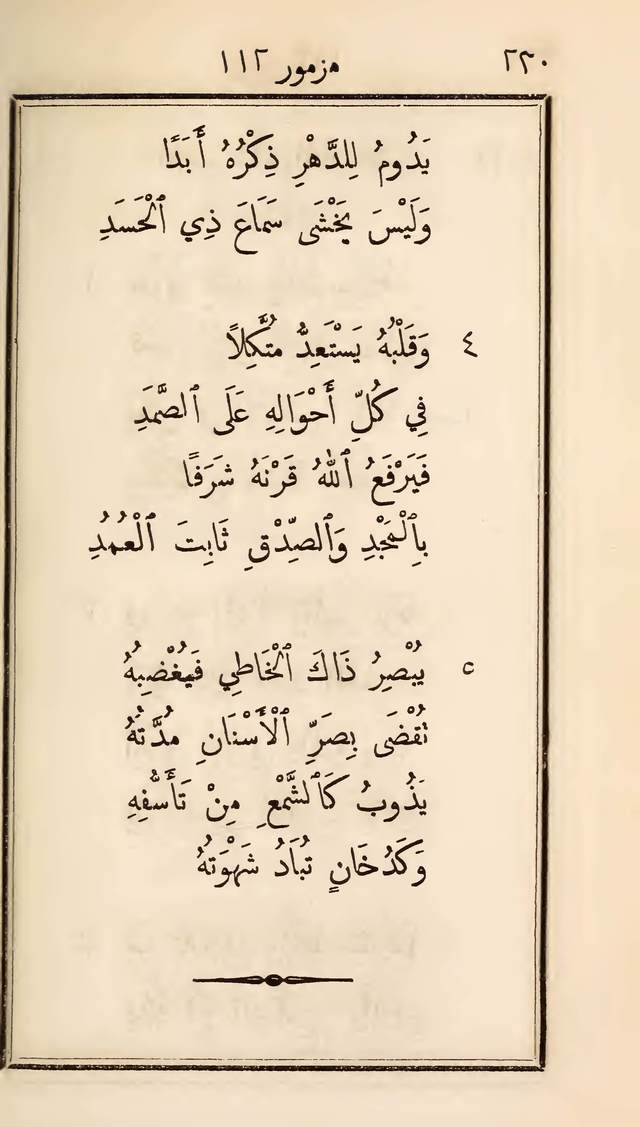 ٢٣٠ مزمور ١١٢
يَدُومُ لِلدَّهْرِ ذِكْرُهُ أَبَدًا
وَلَيْسَ يَخْشَى سَمَاعَ ذِي ٱلْحَسَدِ
٤ وَقَلْبُهُ يَسْتَعِدُّ مُتَّكِلًا
فِي كُلِّ أَحْوَالِهِ عَلَى ٱلصَّمَدِ
فَيَرْفَعُ ٱللهُ قَرْنَهُ شَرَفًا
بِٱلْمَجْدِ وَٱلصِّدْقِ ثَابِتَ ٱلْعُمُدِ
٥ يُبْصِرُ ذَاكَ ٱلْخَاطِي فَيُغْضِبُهُ
تُقْضَى بِصَرِّ ٱلْأَسْنَانِ مُدَّتُهُ
يَذُوبُ كَٱلشَّمْعِ مِنْ تَأَسُّفِهِ
وَكَدُخَانٍ تُبَادُ شَهْوَتُهُ